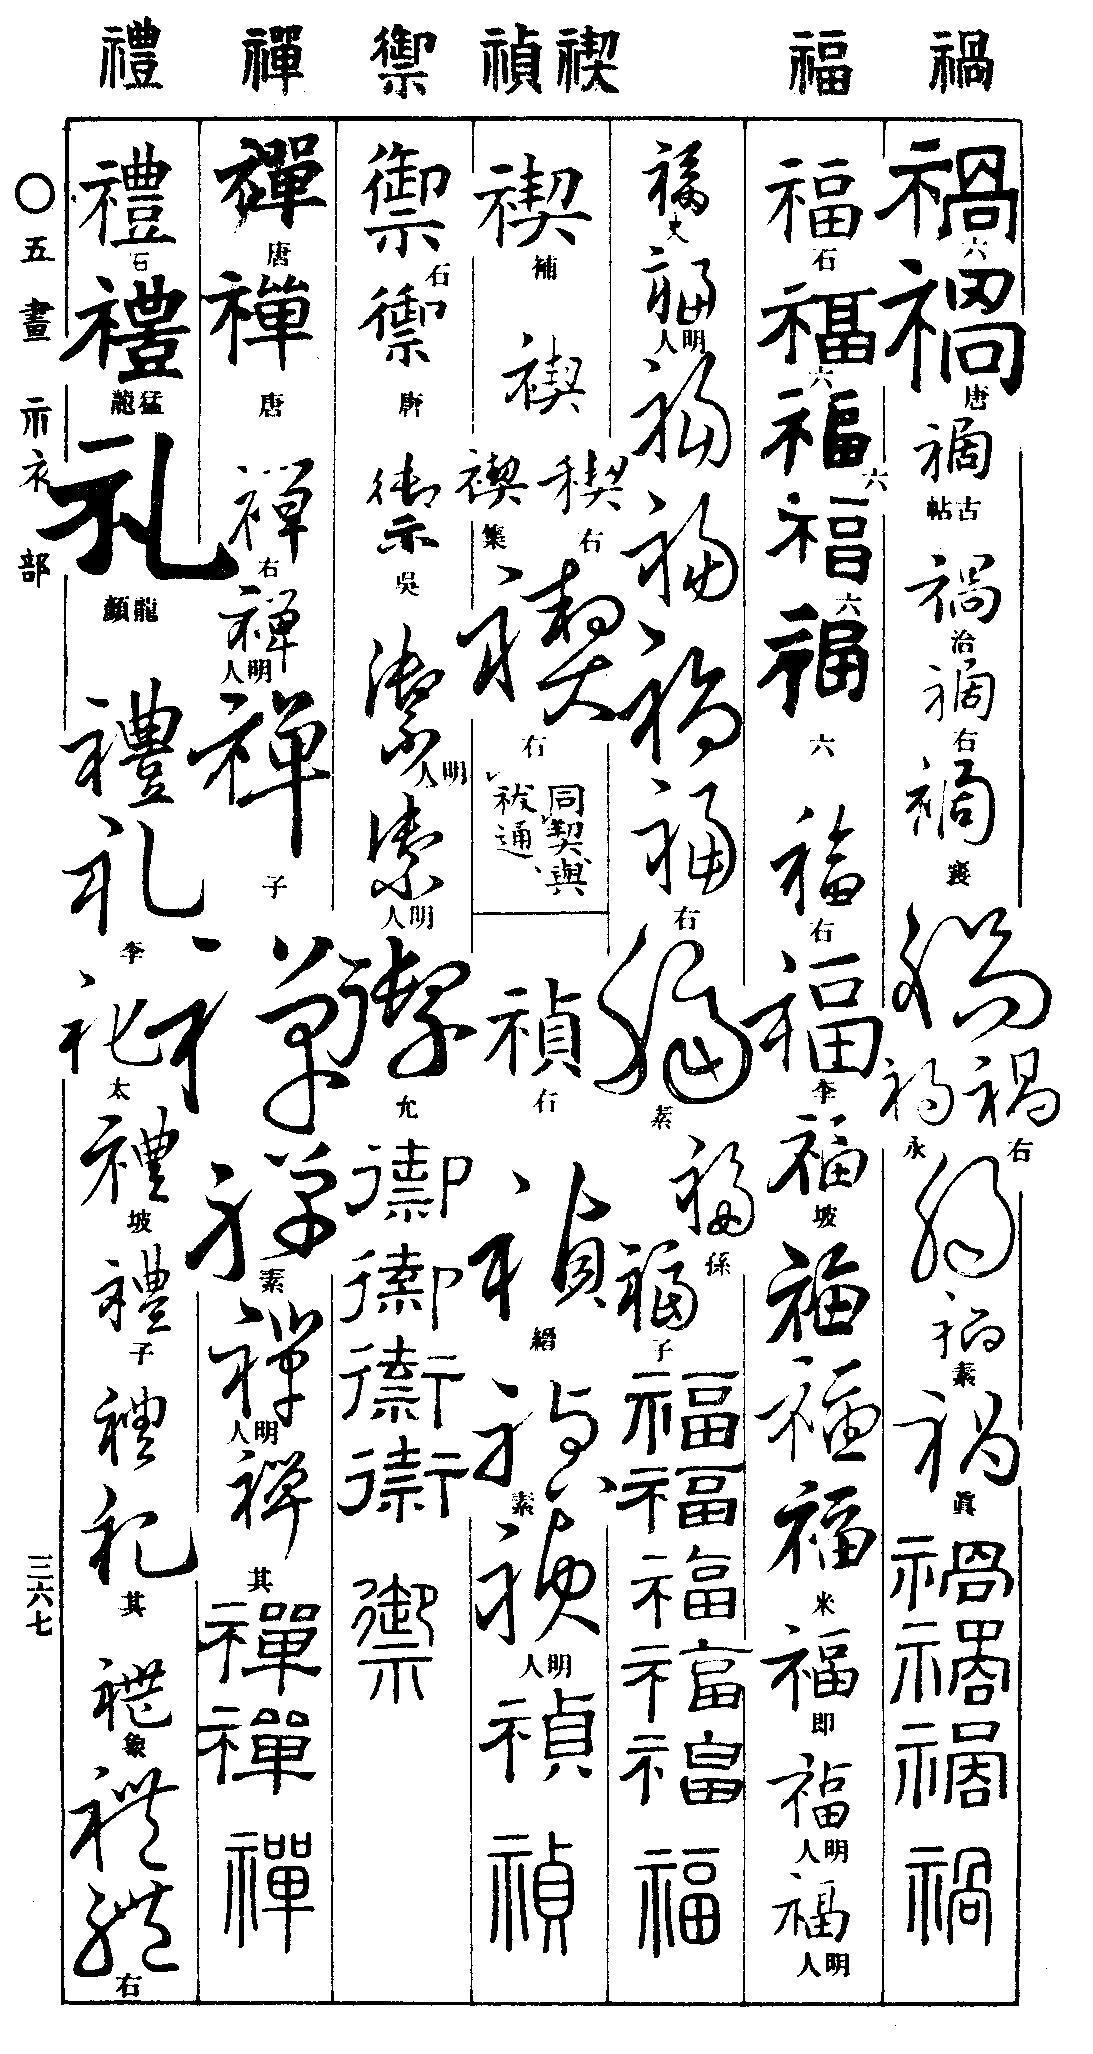 禍 福 禊 禎 禦 禪 禮
禍 六
禍 唐
禍 古帖
禍 治
禍 右
禍 襄
禍
禍 右
禍 永
禍
禍 素
禍 眞
禍
禍
禍
禍
福 石
福 六
福 六
福 六
福 六
福 右
福 李
福 坡
福
福
福 米
福 即
福 明人
福 明人
福 大
福 明人
福
福
福
福 右
福 素
福 係
福 子
福
福
福
福
福
福
禊 補
禊
禊 右
禊 集
禊 右
同契與
祓通、
禎 行
禎 縉
禎 素
禎 明人
禎
禎
禦 石
禦 唐
禦 吳
禦 明人
禦 明人
禦 允
禦
禦
禦
禦
禦
禪 唐
禪 唐
禪 右
禪 明人
禪 子
禪
禪 素
禪 明人
禪 其
禪
禪
禪
禮 石
禮 猛龍
礼 龍顏
禮
礼 李
礼 太
禮 坡
禮 子
禮
礼 其
禮 象
禮
禮 右
〇五畫 示衣部
三六七